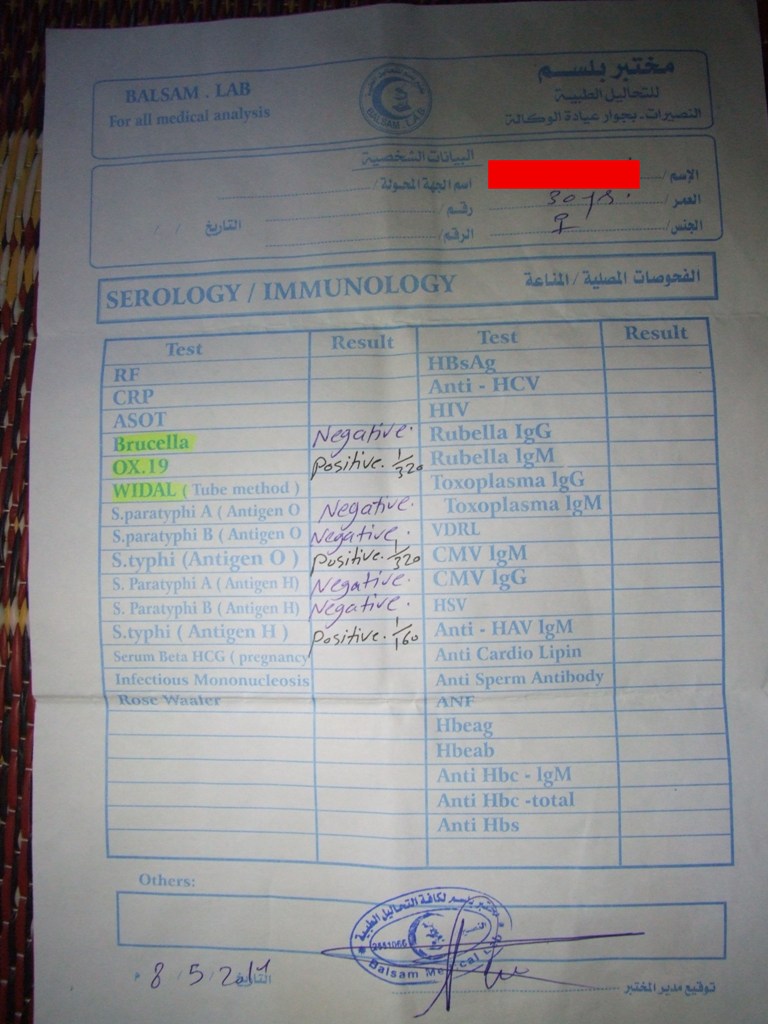 BALSAM . LAB
For all medical analysis
مختبر بلسم
للتحاليل الطبية
النصيرات - بجوار عيادة الوكالة
BALSAM LAB
البيانات الشخصية
الإسم /
اسم الجهة المحولة /
العمر / 30 yrs.
رقم /
الجنس / ♀
الرقم /
التاريخ / /
SEROLOGY / IMMUNOLOGY الفحوصات المصلية / المناعة
Test Result Test Result
RF HBsAg
CRP Anti - HCV
ASOT HIV
Brucella Negative. Rubella IgG
OX.19 Positive. 1/320 Rubella IgM
WIDAL ( Tube method ) Toxoplasma IgG
S.paratyphi A ( Antigen O Negative. Toxoplasma IgM
S.paratyphi B ( Antigen O Negative. VDRL
S.typhi (Antigen O ) Positive. 1/320 CMV IgM
S. Paratyphi A ( Antigen H) Negative. CMV IgG
S. Paratyphi B ( Antigen H) Negative. HSV
S.typhi ( Antigen H ) Positive. 1/160 Anti - HAV IgM
Serum Beta HCG ( pregnancy Anti Cardio Lipin
Infectious Mononucleosis Anti Sperm Antibody
Rose Waaler ANF
Hbeag
Hbeab
Anti Hbc - IgM
Anti Hbc -total
Anti Hbs
Others:
مختبر بلسم لكافة التحاليل الطبية
Balsam Medical
التاريخ 8 / 5 / 2011
توقيع مدير المختبر